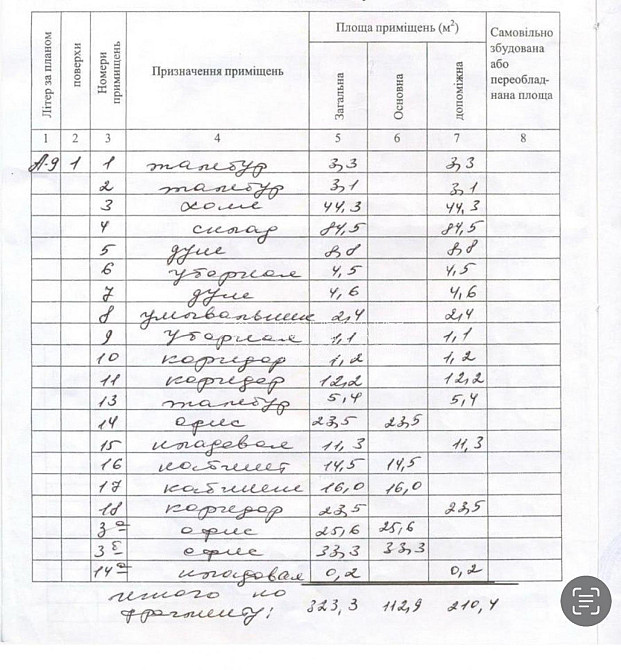 Літер за планом
поверхи
Номери примищень
Призначення приміщень
Площа приміщень (м²)
Загальна
Основна
допоміжна
Самовільно
збудована
або
переоблад-
нана площа
1 2 3 4 5 6 7 8
А-9 1 1 тамбур 3,3 3,3
2 тамбур 3,1 3,1
3 холл 44,3 44,3
4 склад 84,5 84,5
5 душ 8,8 8,8
6 уборная 4,5 4,5
7 душ 4,6 4,6
8 умывальник 2,4 2,4
9 уборная 1,1 1,1
10 коридор 1,2 1,2
11 коридор 12,2 12,2
13 тамбур 5,4 5,4
14 офис 23,5 23,5
15 кладовая 11,3 11,3
16 кабинет 14,5 14,5
17 кабинет 16,0 16,0
18 коридор 23,5 23,5
3а офис 25,6 25,6
3б офис 33,3 33,3
14а кладовая 0,2 0,2
итого по
фрагменту: 323,3 112,9 210,4